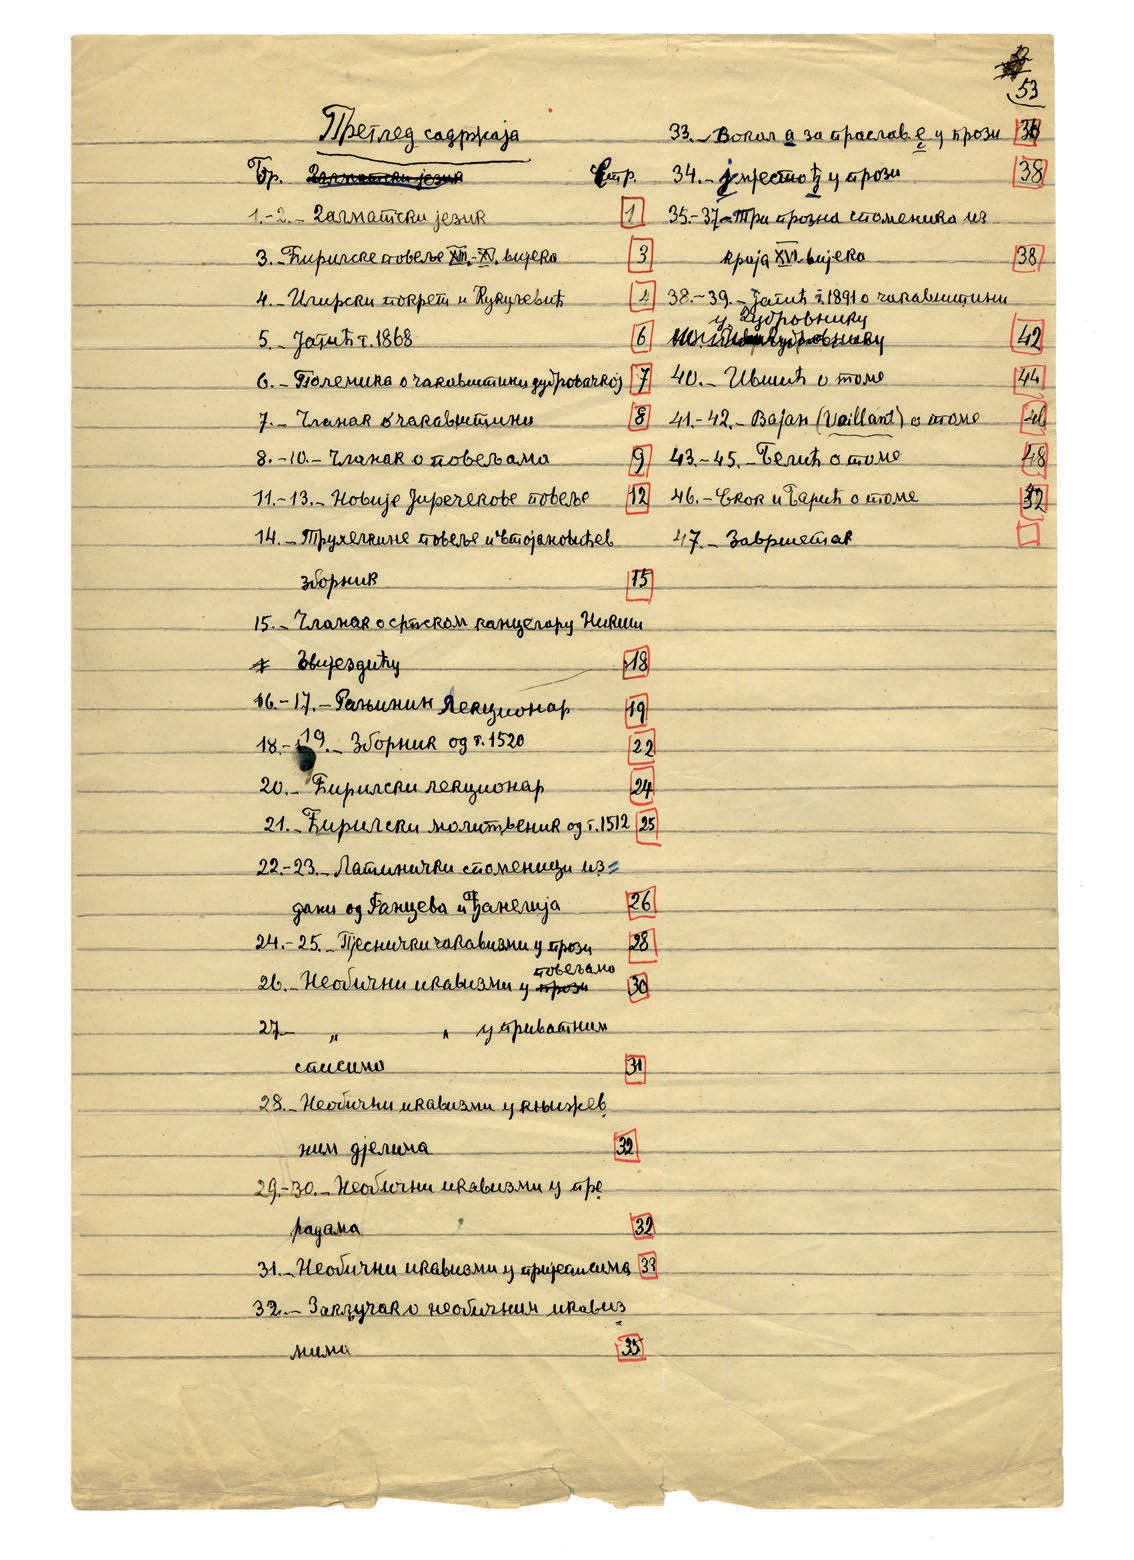 53
Преглед садржаја
Бр. Далматски језик Стр.
1.-2.- Далматски језик 1
3.- Ћирилске повеље XIII.-XV. вијека 3
4.- Илирски покрет и Кукуљевић 4
5.- Јагић г. 1868 6
6.- Полемика о чакавштини дубровачкој 7
7.- Чланак о чакавштини 8
8.-10.- Чланак о повељама 9
11.-13.- Новије Јиречекове повеље 12
14.- Трухелкине повеље и Стојановићев
зборник 15
15.- Чланак о српском канцелару Никши
Звијездићу 18
16.-17.- Рањинин Лекционар 19
18.-19.- Зборник од г. 1520 22
20.- Ћирилски лекционар 24
21.- Ћирилски молитвеник од г. 1512 25
22.-23.- Латинички споменици из=
дани од Фанцева и Ђанелија 26
24.-25.- Пјеснички чакавизми у прози 28
повељама
26.- Необични икавизми у прози 30
27.- „ „ у приватним
списима 31
28.- Необични икавизми у књижев
ним дјелима 32
29.-30.- Необични икавизми у пре
радама 32
31.- Необични икавизми у пријеписима 33
32.- Закључак о необичним икавиз
мима 35
33.- Вокал а за праслав е у прози 36
34.- ј мјесто ђ у прози 38
35.-37.- Три прозна споменика из
краја XVI. вијека 38
38.-39.- Јагић г. 1891 о чакавштини
у Дубровнику
42
40.- Ившић о томе 44
41.-42.- Вајан (Vaillant) о томе 46
43.-45.- Белић о томе 48
46.- Скок и Барић о томе
47.- Завршетак